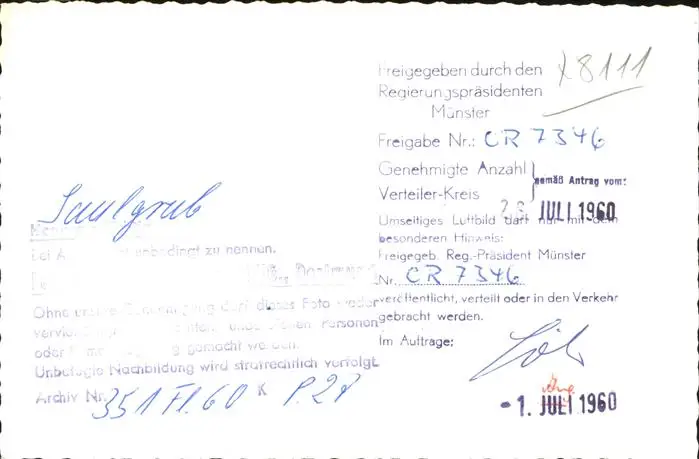 Freigegeben durch den
Regierungspräsidenten
Münster
x8111
Freigabe Nr.: CR 7346
Genehmigte Anzahl
Verteiler-Kreis
gemäß Antrag vom:
JULI 1960
Umseitiges Luftbild darf nur mit dem
besonderen Hinweis:
Freigegeb. Reg.-Präsident Münster
Nr. CR 7346
veröffentlicht, verteilt oder in den Verkehr
gebracht werden.
Im Auftrage:
-1. JULI 1960
Saulgrub
unbedingt zu nennen.
Dortmund
Ohne unsere Genehmigung darf dieses Foto weder
Personen
oder gemacht werden.
Unbefugte Nachbildung wird strafrechtlich verfolgt.
Archiv Nr. 351 Fl. 60 K P. 28